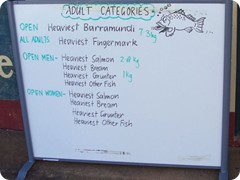 ADULT CATEGORIES
OPEN Heaviest Barramundi 7.3kg
ALL ADULTS Heaviest Fingermark
OPEN MEN - Heaviest Salmon
Heaviest Bream
Heaviest Grunter 1kg
Heaviest Other Fish
OPEN WOMEN - Heaviest Salmon
Heaviest Bream
Heaviest Grunter
Heaviest Other Fish